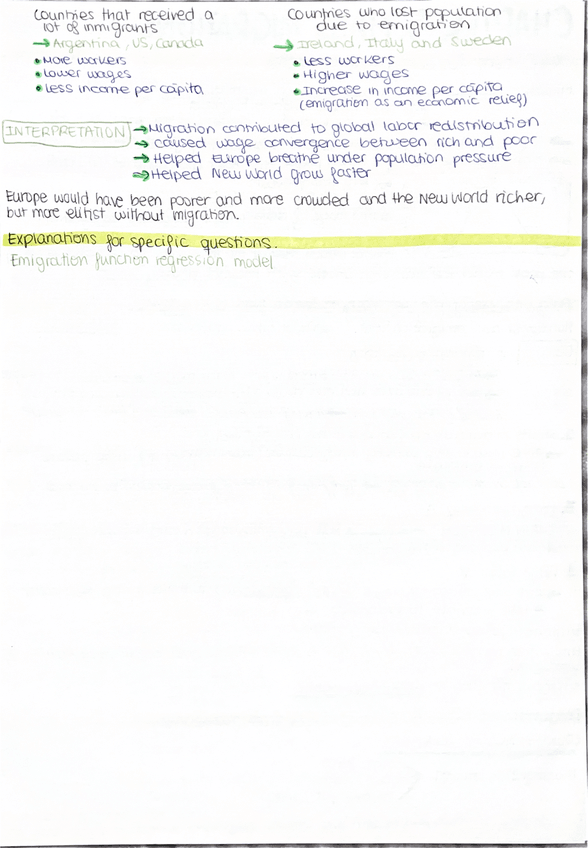 Countries that received a
lot of immigrants
→ Argentina, US, Canada
• More workers
• Lower wages
• Less income per cápita
Countries who lost population
due to emigration
→ Ireland, Italy and Sweden
• Less workers
• Higher wages
• Increase in income per cápita
(emigration as an economic relief)
INTERPRETATION → Migration contributed to global labor redistribution
→ caused wage convergence between rich and poor
→ Helped Europe breathe under population pressure
→ Helped New World grow faster
Europe would have been poorer and more crowded and the New World richer,
but more elitist without migration.
Explanations for specific questions.
Emigration function regression model